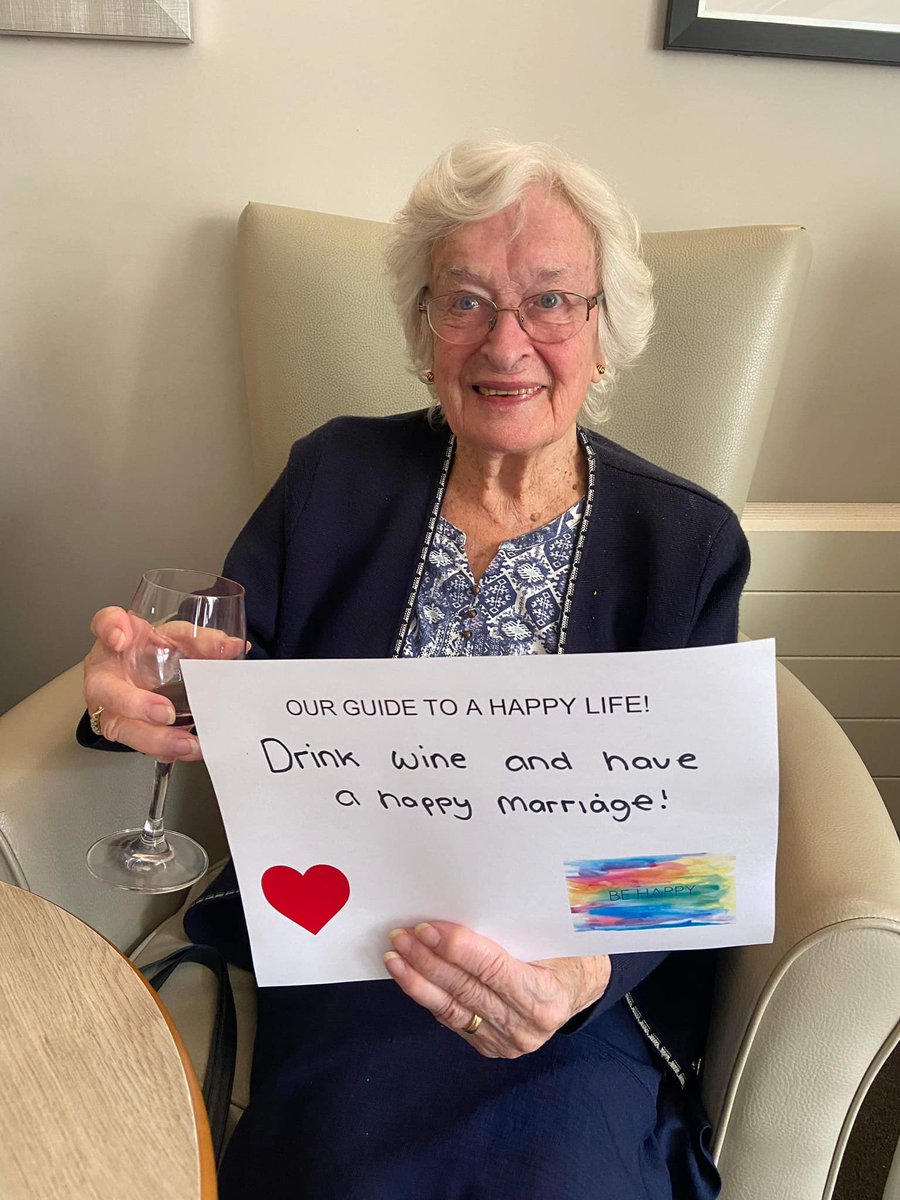 OUR GUIDE TO A HAPPY LIFE!
Drink wine and have
a happy marriage!
BE HAPPY